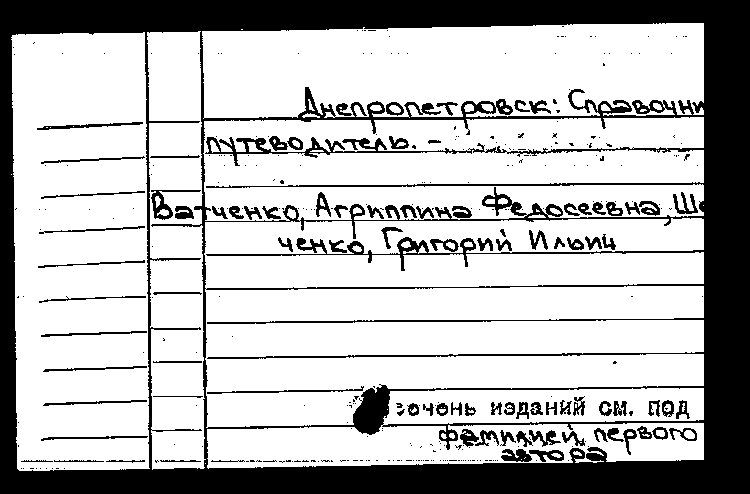 Днепропетровск: Справочни
путеводитель. –
Ватченко, Агриппина Федосеевна, Ше
ченко, Григорий Ильич
изданий см. под
фамилией первого
автора